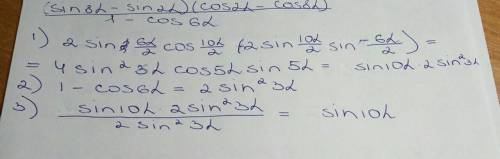 (sin8α - sin2α)(cos2α - cos8α)
1 - cos6α
1) 2 sin 6α/2 cos 10α/2 (-2 sin 10α/2 sin -6α/2) =
= 4 sin² 3α cos5α sin 5α = sin10α · 2sin²3α
2) 1 - cos6α = 2 sin² 3α
3) sin10α · 2sin²3α / 2 sin² 3α = sin10α